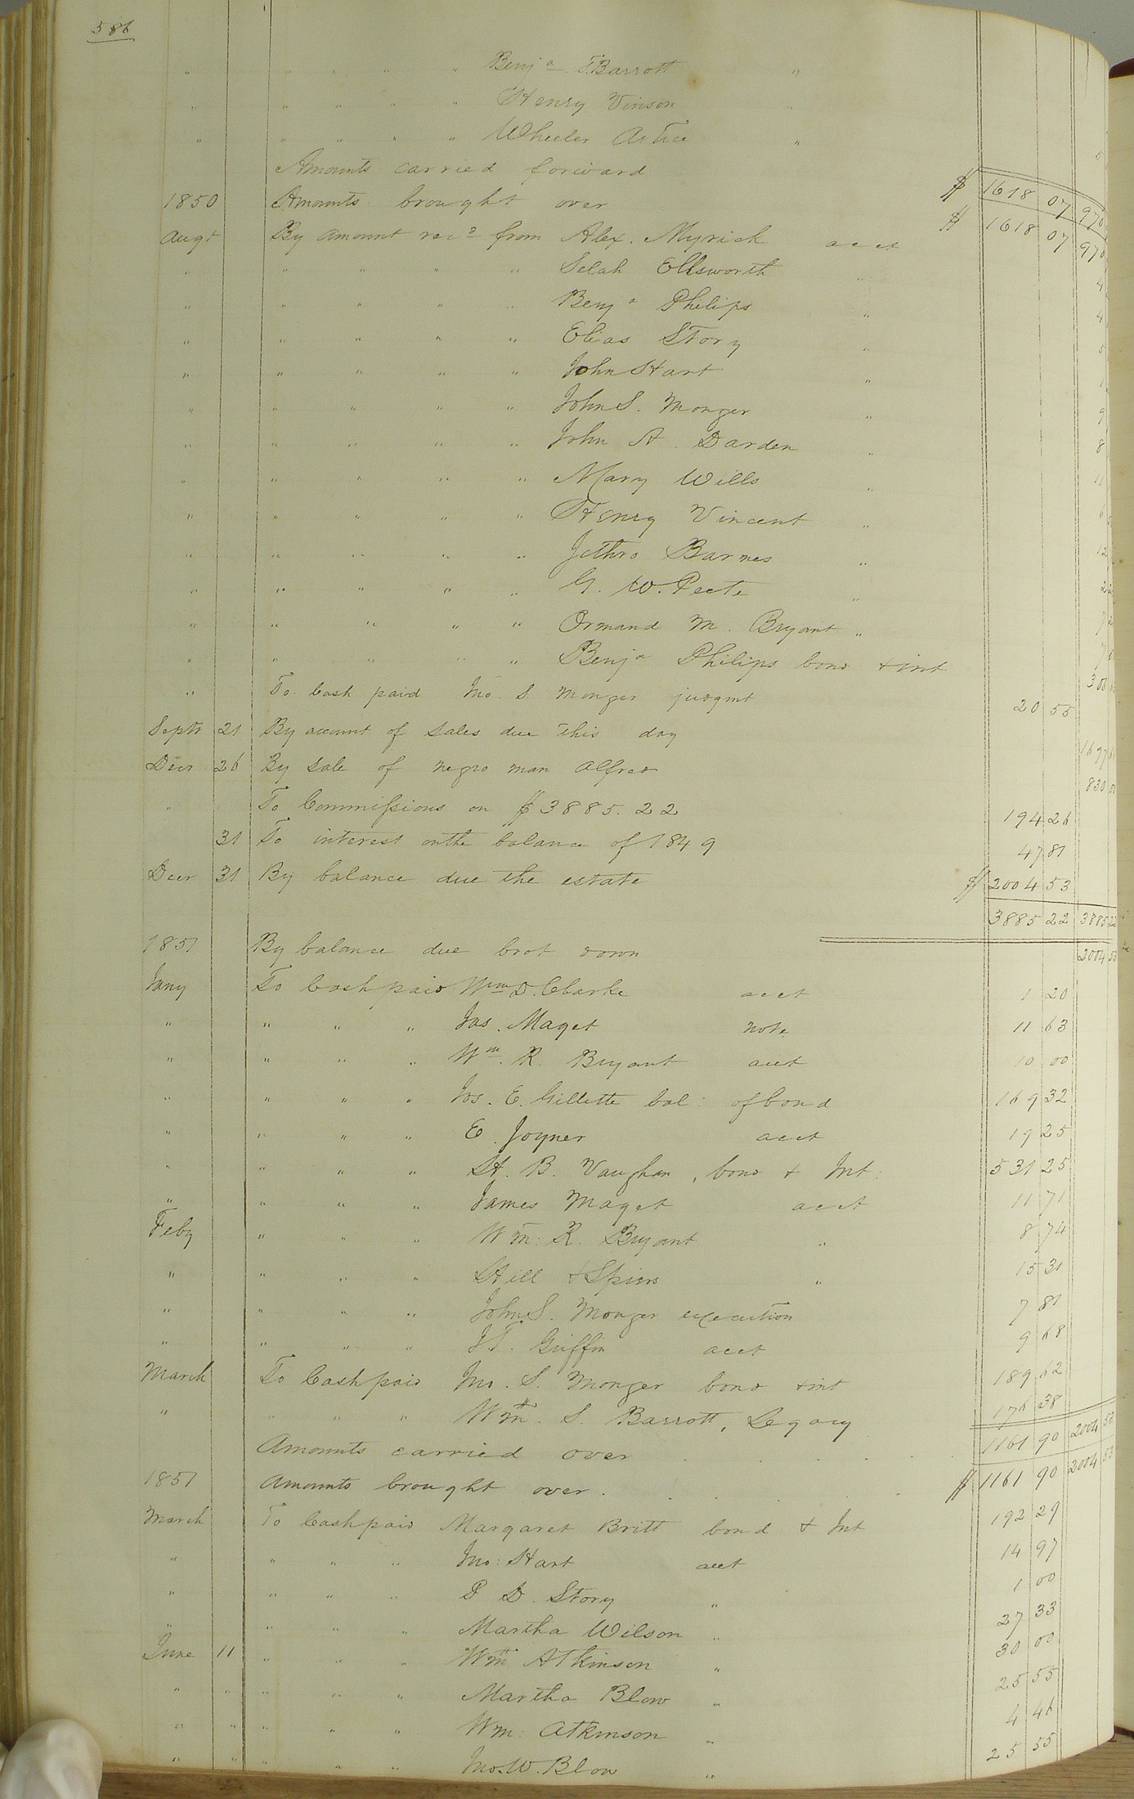 586
" " " " " Benja. T. Barrott "
" " " " " Henry Vinson "
" " " " " Wheeler "
Amounts carried forward $ 1618 07 970
1850 Amounts brought over $ 1618 07 970
Augt By amount recd from Alex. Myrick acct
" " " " " Selah Ellsworth "
" " " " " Benja Philips "
" " " " " Elias Story "
" " " " " John Hart "
" " " " " John S. Monger "
" " " " " John A. Darden "
" " " " " Mary Wills "
" " " " " Henry Vincent "
" " " " " Jethro Barnes "
" " " " " G. W. Peete "
" " " " " Ormand M. Bryant "
" " " " " Benja Philips bond & int 300
" To Cash paid Jno. S. Monger judgmt 20 55
Septr 21 By account of sales due this day
Decr 26 By sale of negro man Alfred 830
" To Commissions on $3885.22 194 26
31 To interest on the balance of 1849 47 81
Decr 31 By balance due the estate $ 2004 53
3885 22 3885 22
1851 By balance due brot down 2004 53
Jany To Cash paid Wm D. Clarke acct 1 20
" " " " Jas. Maget note 11 63
" " " " Wm. R. Bryant acct 10 00
" " " " Jos. E. Gillette bal: of bond 169 32
" " " " E. Joyner acct 19 25
" " " " H. B. Vaughan, bond & Int: 531 25
" " " " James Maget acct 11 71
Feby " " " Wm: R. Bryant " 8 74
" " " " Hill & Spiers " 15 31
" " " " John S. Monger execution 7 81
" " " " J T. Griffin acct 9 68
March To Cash paid Jno. S. Monger bond & int 189 62
" " " " Wm. S. Barrott, Legacy 176 38
Amounts carried over 1161 90 2004 53
1851 Amounts brought over. $ 1161 90 2004 53
March To Cash paid Margaret Britt bond & Int 192 29
" " " " Jno: Hart acct 14 97
" " " " P D. Story " 1 00
" " " " Martha Wilson " 27 33
June 11 " " " Wm Atkinson " 30 00
" " " " " Martha Blow " 25 55
" " " " " Wm: Atkinson " 4 46
" " " " " Jno. W. Blow " 25 55